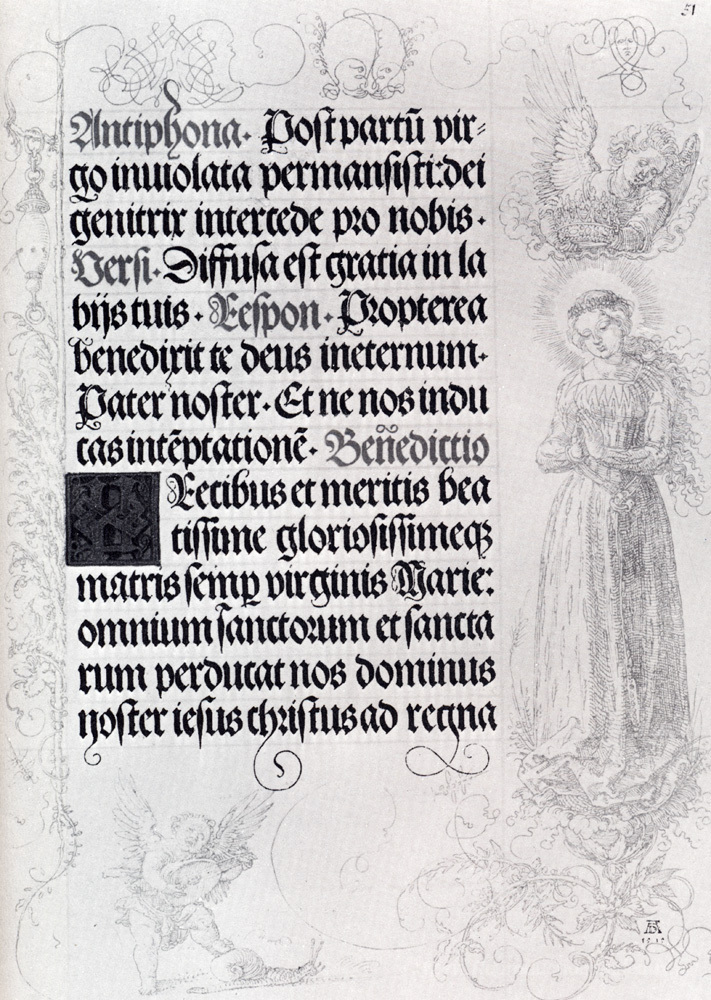 51
Antiphona. Poſt partū vir⸗
go inuiolata permanſiſti: dei
genitrix intercede pro nobis.
Verſi. Diffuſa eſt gratia in la
bijs tuis. Reſpon. Propterea
benedixit te deus ineternum.
Pater noſter. Et ne nos indu
cas intēptationē. Beñedictio
PRecibus et meritis bea
tiſſime glorioſiſſimeqꝫ
matris ſemꝑ virginis Marie:
omnium ſanctorum et ſancta
rum perducat nos dominus
noſter ieſus chriſtus ad regna
AD
1515